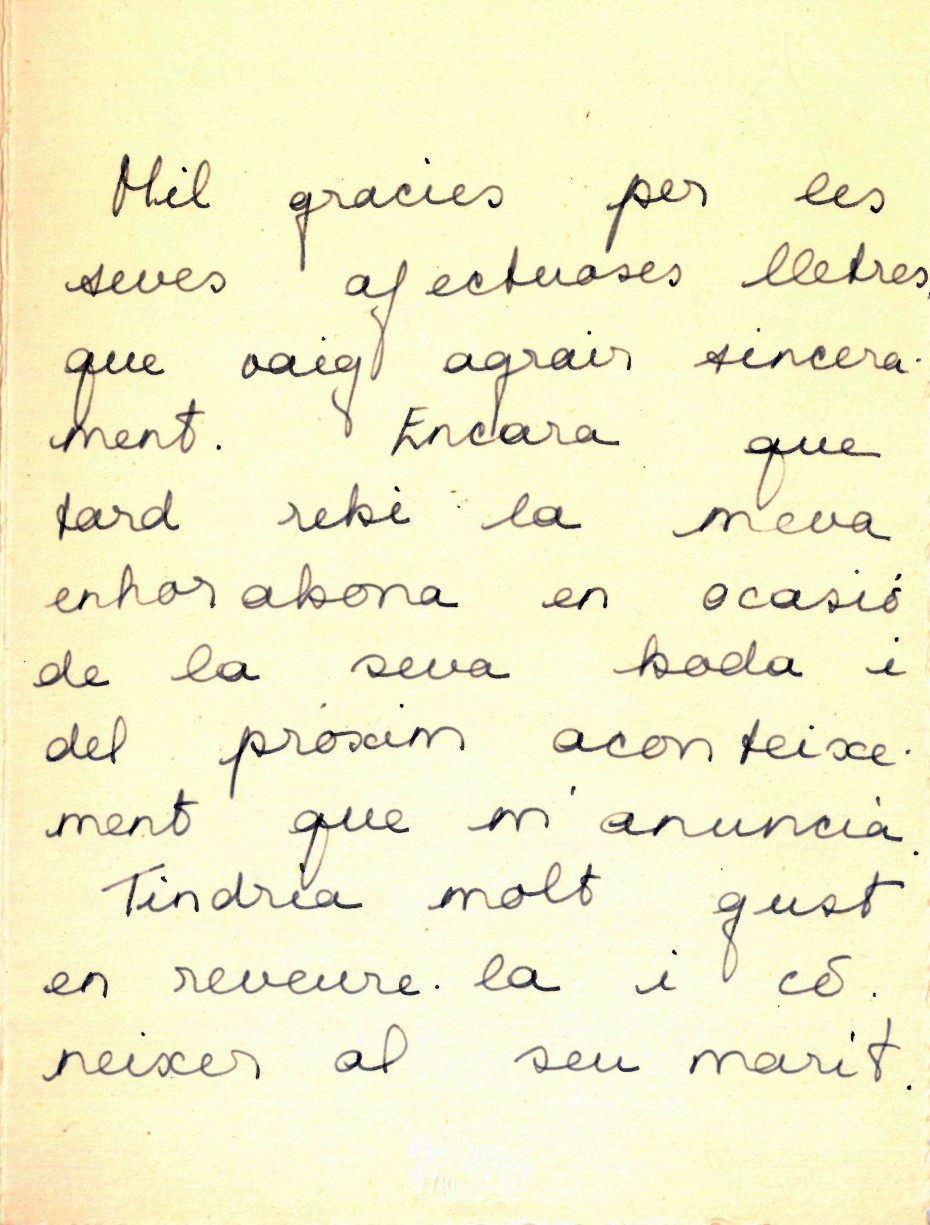 Mil gracies per les
seves afectuoses lletres,
que vaig agrair sincera-
ment. Encara que
tard rebi la meva
enhorabona en ocasió
de la seva boda i
del próxim aconteixe-
ment que m'anuncià.
Tindria molt gust
en reveure-la i co-
neixer al seu marit.